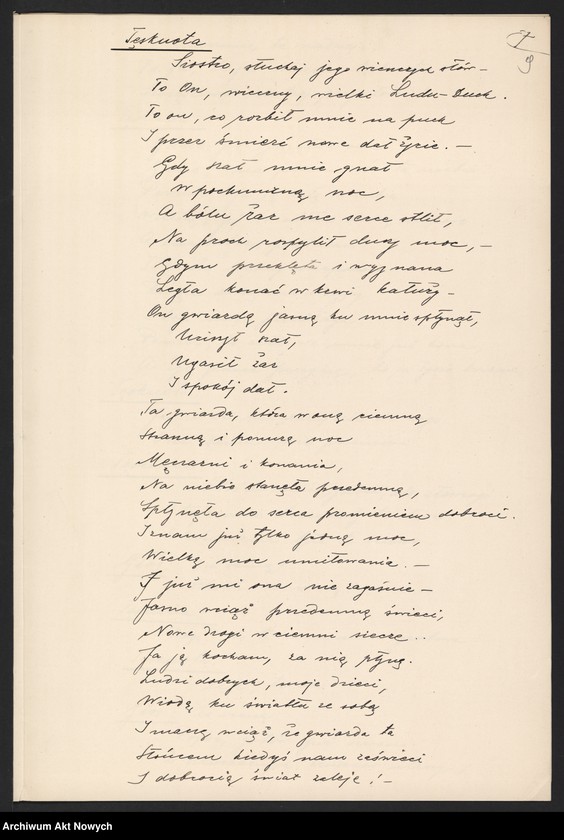 Tęsknota
7
9
Siostro, słuchaj jego wieszczych słów –
To On, wieczny, wielki Ludu-Duch.
To on, co rozbił mnie na puch
I przez śmierć nowe dał życie. –
Gdy szał mnie gnał
W pochmurną noc,
A bólu żar me serce stlił,
Na proch rozpylił duszy moc, –
Gdym przeklęta i wygnana
Legła konać w krwi kałuży –
On gwiazdą jasną ku mnie spłynął,
Uciszył szał,
Ugasił żar
I spokój dał.
Ta gwiazda, która w oną ciemną
Straszną i ponurą noc
Męczarni i konania,
Na niebie stanęła przedemną,
Spłynęła do serca promieniem dobroci.
I znam już tylko jedną moc,
Wielką moc umiłowania. –
I już mi ona nie zagaśnie –
Jasno wciąż przedemną świeci,
Nowe drogi w ciemni siecze..
Ja ją kocham, za nią płynę.
Ludzi dobrych, moje dzieci,
Wiodę ku światłu ze sobą
I marzę wciąż, że gwiazda ta
Słońcem kiedyś nam zaświeci
I dobrocią świat zaleje! –
Archiwum Akt Nowych